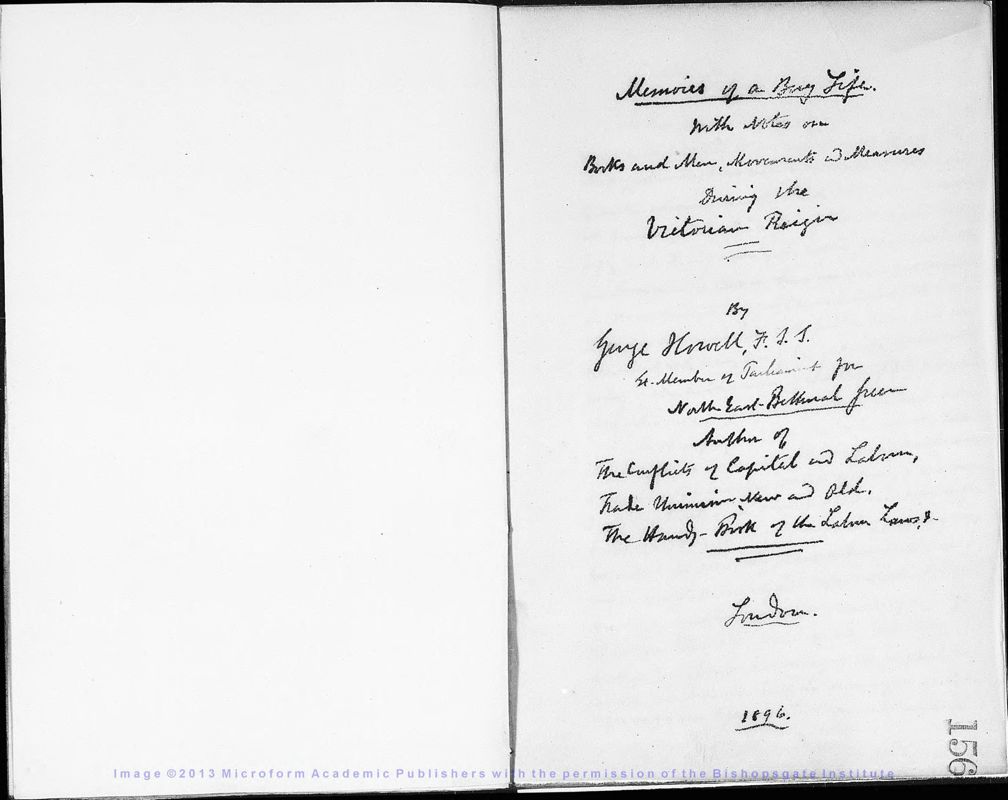 Memoirs of a Busy Life.
With Notes on
Books and Men, Movements and Measures
During the
Victorian Reign
By
George Howell, F. S. S.
Ex-Member of Parliament for
North East-Bethnal Green
Author of
The Conflicts of Capital and Labour,
Trade Unionism New and Old,
The Handy-Book of the Labour Laws, &
London.
1896.
156
Image ©2013 Microform Academic Publishers with the permission of the Bishopsgate Institute